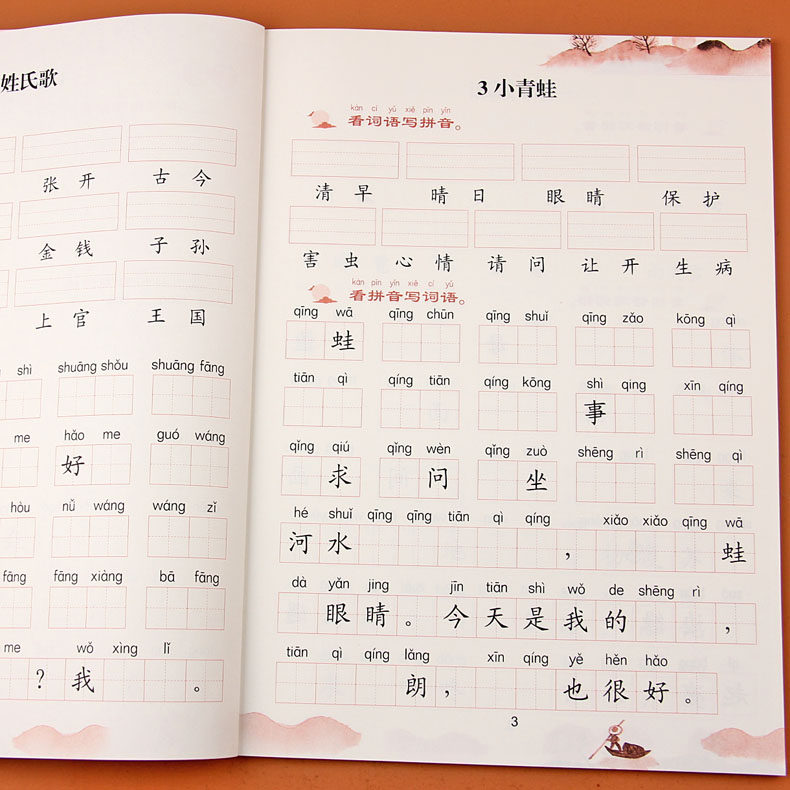 姓氏歌
张开 古今
金钱 子孙
上官 王国
shì shuāng shǒu shuāng fāng
me hǎo me guó wáng
好
hòu nǚ wáng wáng zǐ
fāng fāng xiàng bā fāng
me wǒ xìng lǐ
？我 。
3 小青蛙
kàn cí yǔ xiě pīn yīn
看词语写拼音。
清早 晴日 眼睛 保护
害虫 心情 请问 让开 生病
kàn pīn yīn xiě cí yǔ
看拼音写词语。
qīng wā qīng chūn qīng shuǐ qīng zǎo kōng qì
蛙
tiān qì qíng tiān qíng kōng shì qing xīn qíng
事
qǐng qiú qǐng wèn qǐng zuò shēng rì shēng qì
求 问 坐
hé shuǐ qīng qīng tiān qì qíng xiǎo xiǎo qīng wā
河水 ， 蛙
dà yǎn jing jīn tiān shì wǒ de shēng rì
眼睛。今天是我的 ，
tiān qì qíng lǎng xīn qíng yě hěn hǎo
朗， 也很好。
3